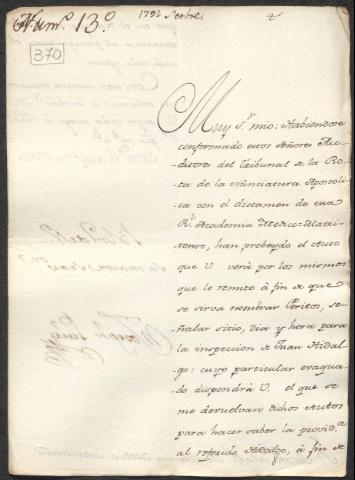 Num.º 13.º
1792 Septbre
2
370
Muy S.r mio: Habiendose
conformado estos Señores Au-
ditores del Tribunal de la Ro-
ta de la Nunciatura Aposto-
lica con el dictamen de esa
R.l Academia Medico-Matri-
tense, han probeydo el Auto
que V. verá por los mismos
que le remito à fin de que
se sirva nombrar Peritos, se-
ñalar sitio, dia y hora para
la inspeccion de Juan Hidal-
go: cuyo particular evaqua-
do dispondrá V. el que se
me devuelvan dichos Autos
para hacer saber la provid.a
al referido Hidalgo, à fin de